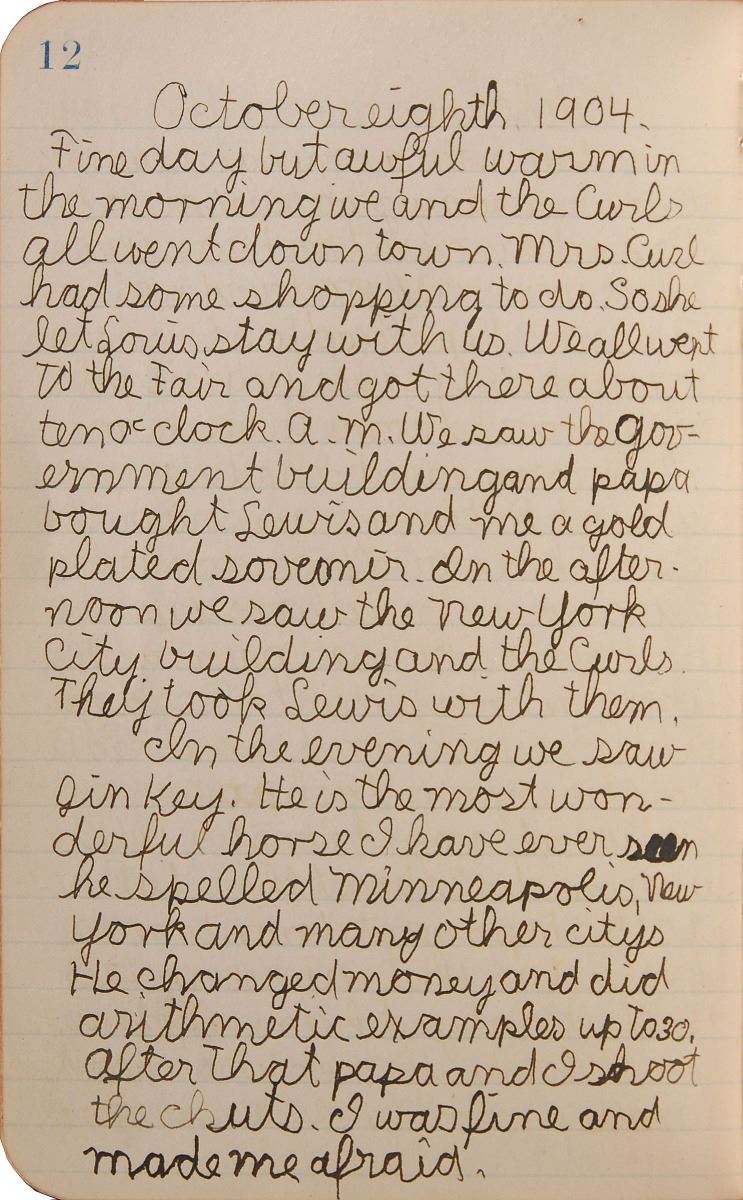 12
October eighth 1904.
Fine day but awful warm in
the morning we and the Curls
all went down town. Mrs. Curl
had some shopping to do. So she
let Louis stay with us. We all went
to the Fair and got there about
ten oc clock. A. M. We saw the Gov-
ernment building and papa
bought Lewis and me a gold
plated soveonir. In the after-
noon we saw the New York
City building and the Curls.
They took Lewis with them.
In the evening we saw
Jin Key. He is the most won-
derful horse I have ever seen
he spelled Minneapolis, New
York and many other citys
He changed money and did
arithmetic examples up to 30.
After that papa and I shoot
the chuts. I was fine and
made me afraid.